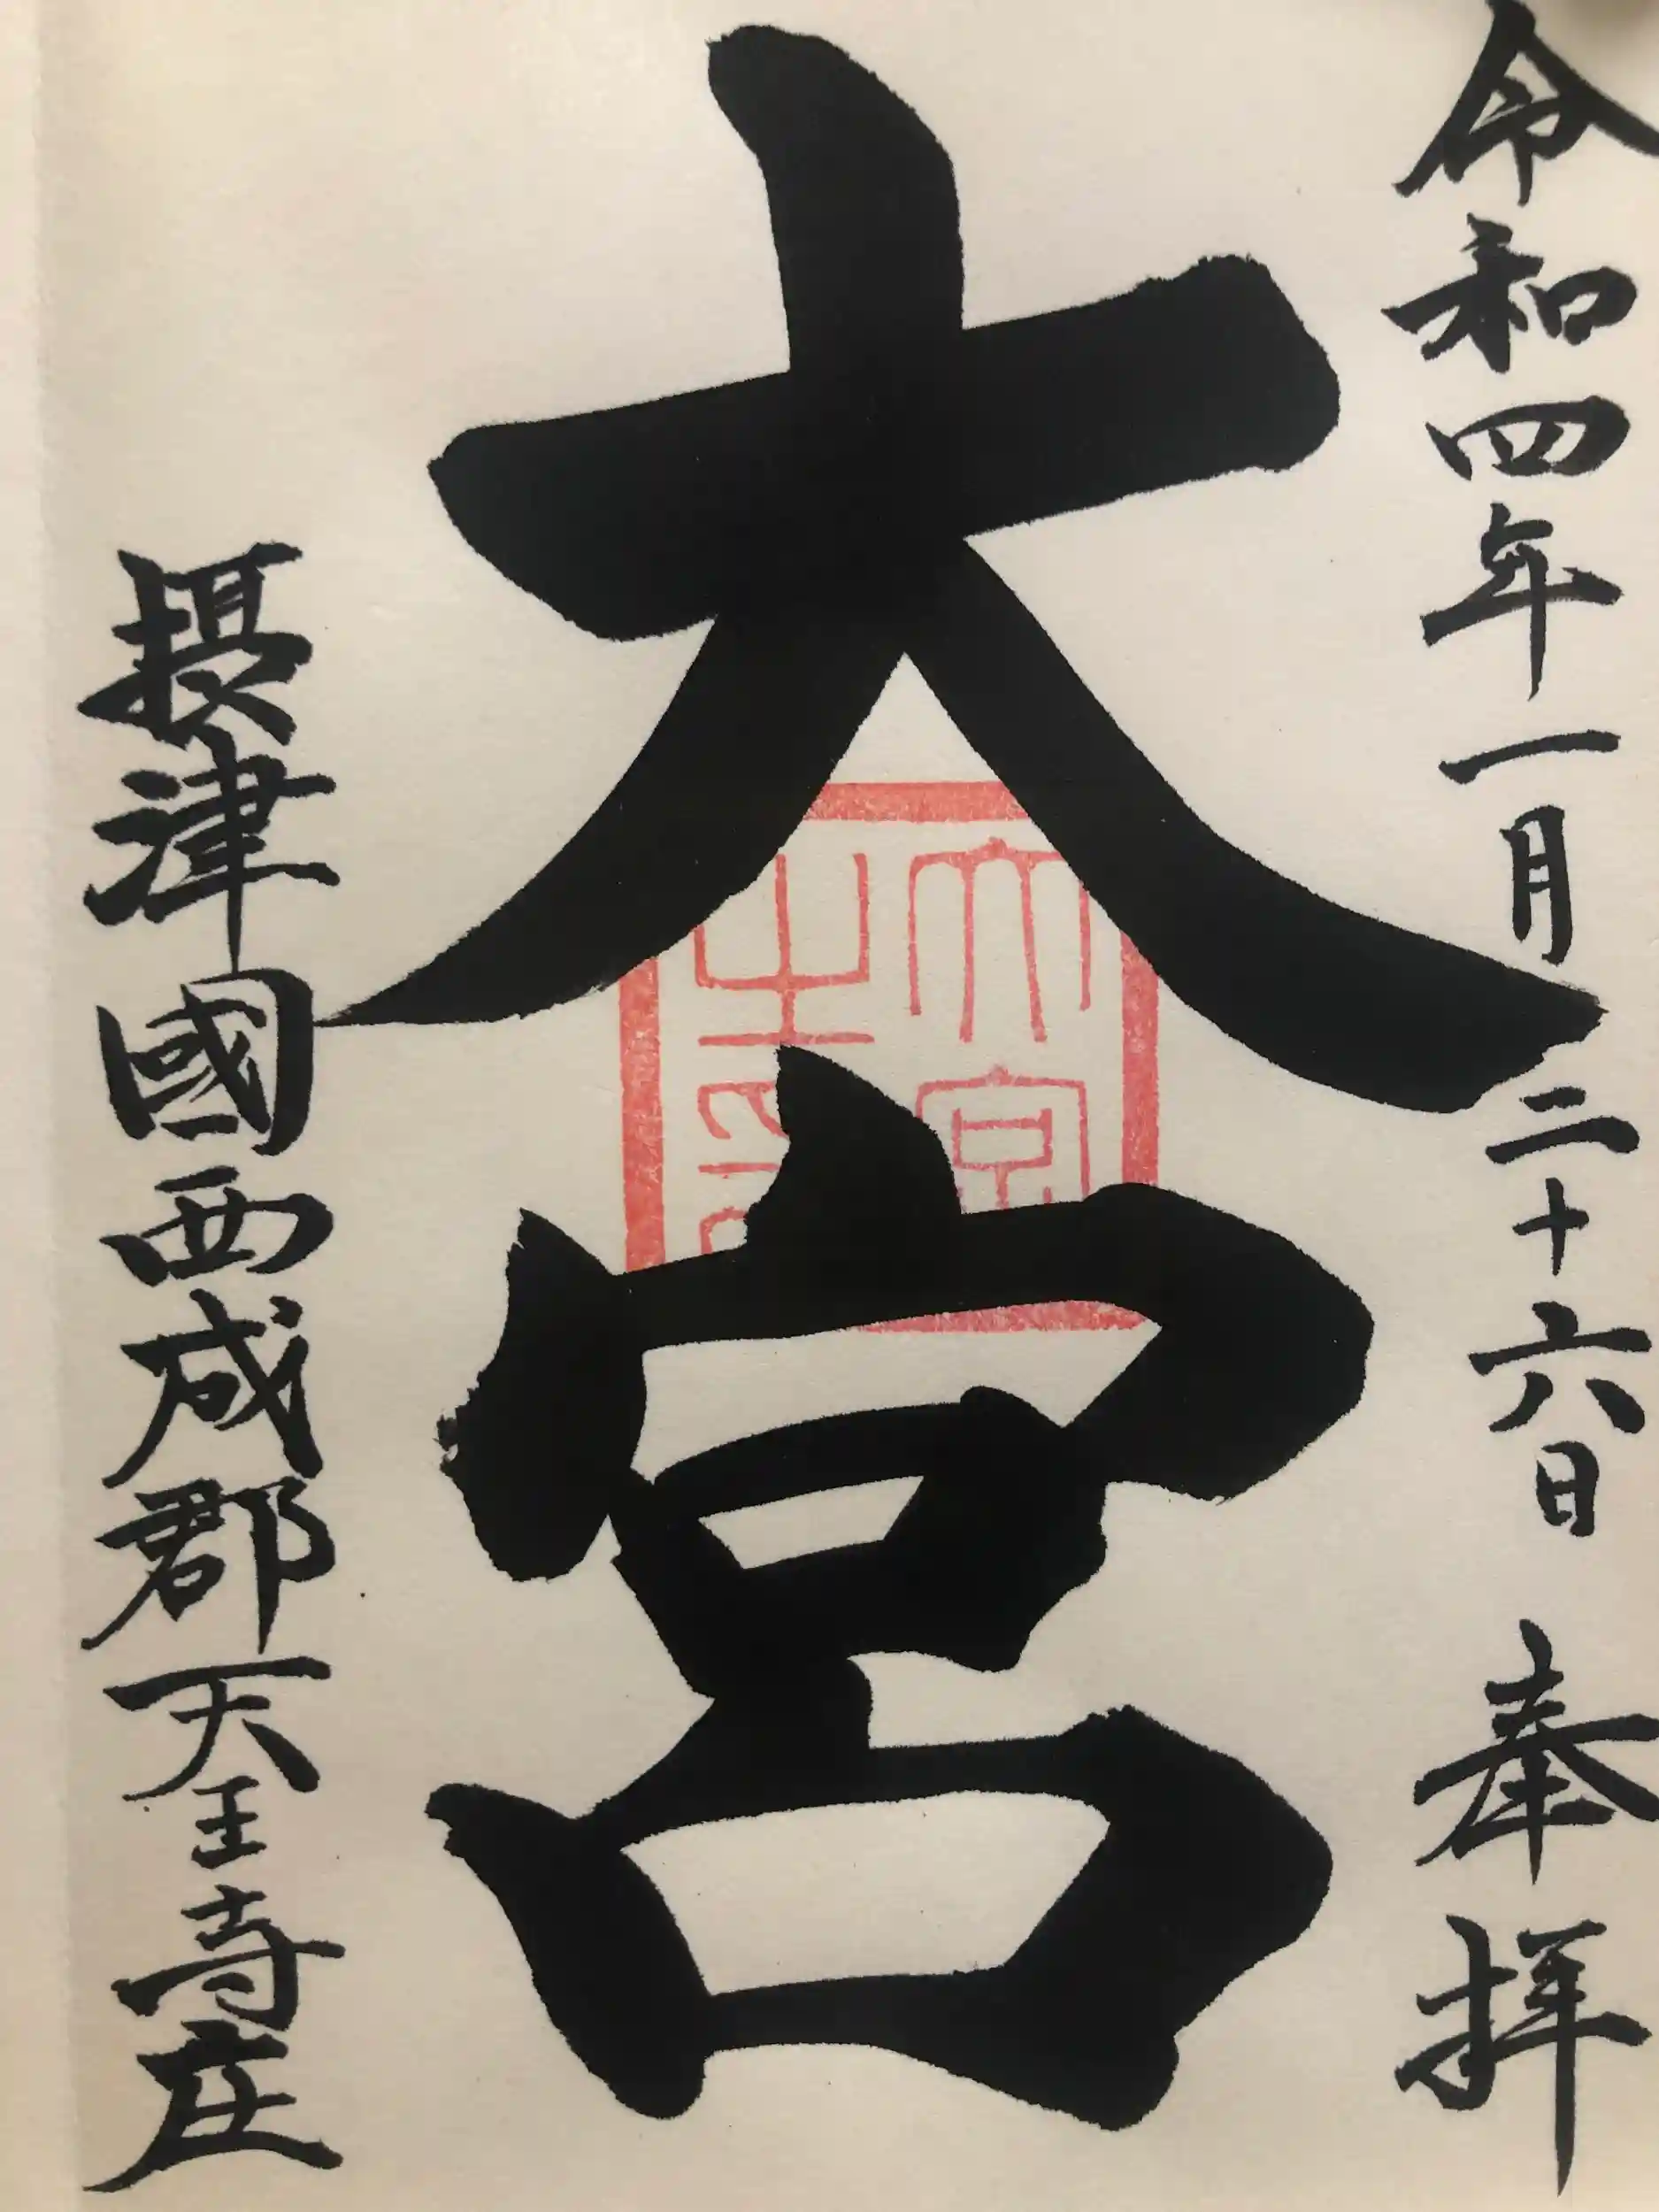 令和四年一月二十六日 奉拝
大宮
大宮之印
摂津國西成郡天王寺庄